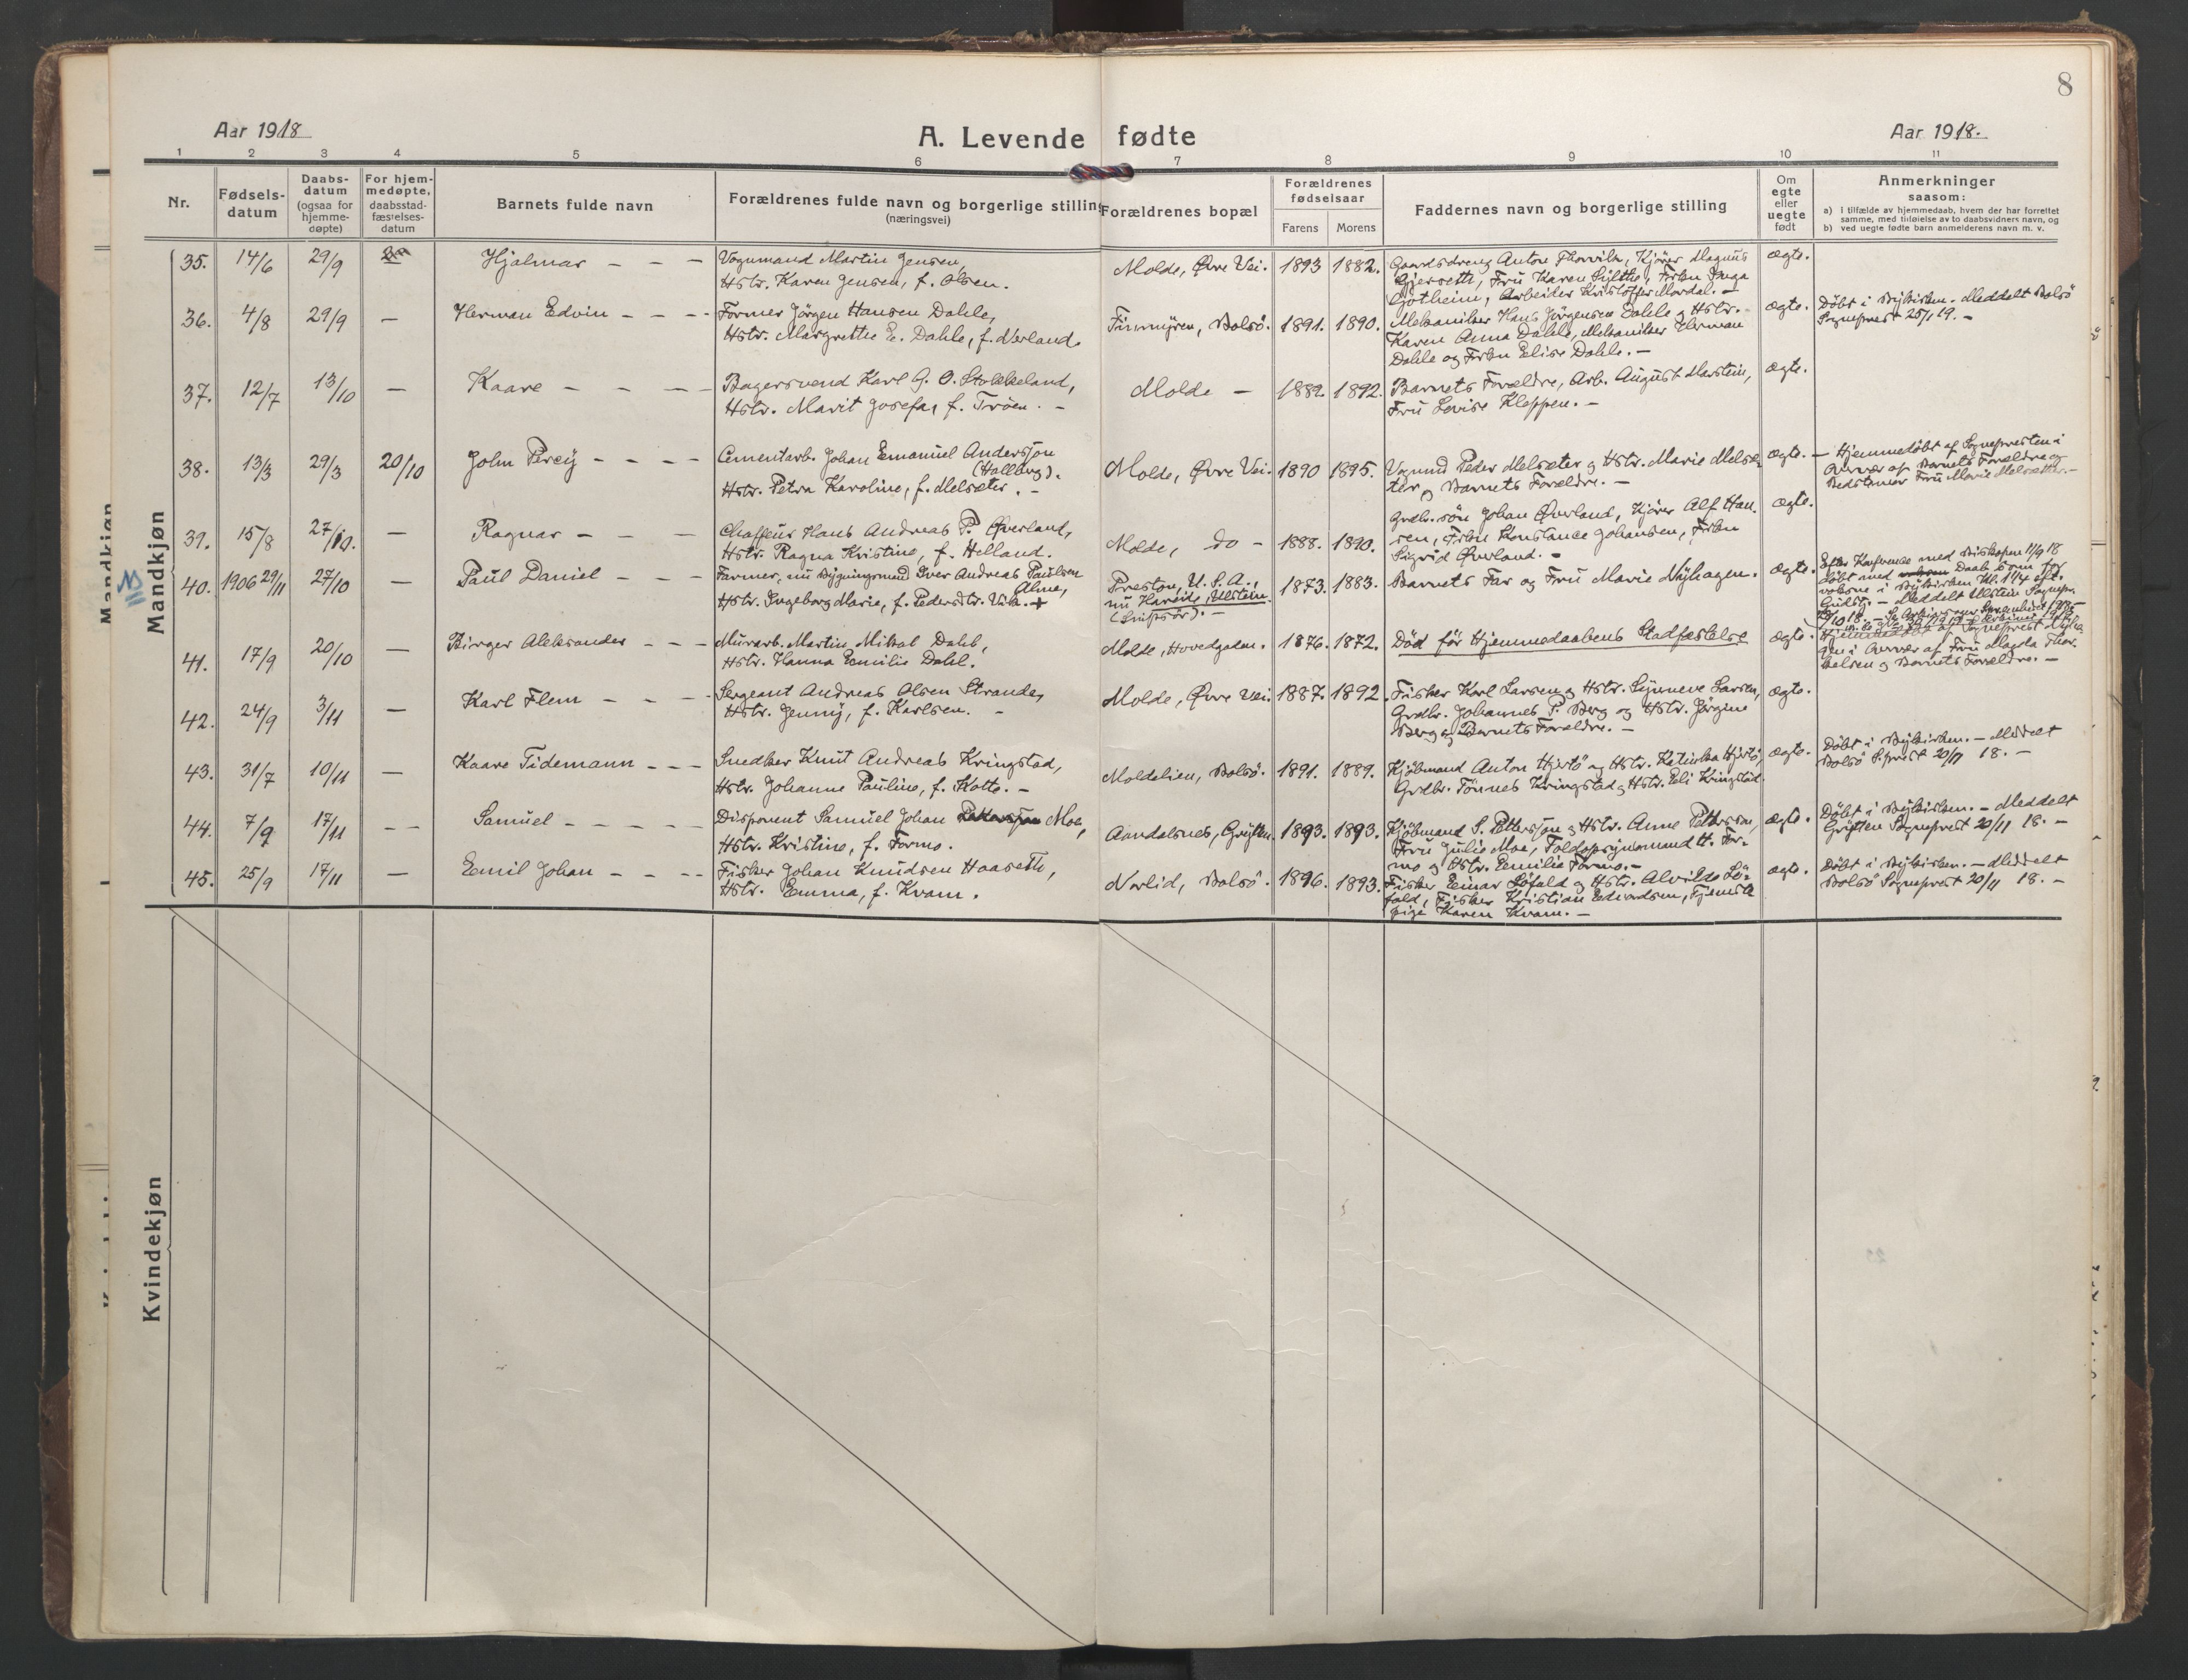 8
Aar 1918
A. Levende fødte
Aar 1918.
1 2 3 4 5 6 7 8 9 10 11
Nr.
Fødsels-
datum
Daabs-
datum
(ogsaa for
hjemme-
døpte)
For hjem-
medøpte,
daabsstad-
fæstelses-
datum
Barnets fulde navn
Forældrenes fulde navn og borgerlige stilling
(næringsvei)
Forældrenes bopæl
Forældrenes
fødselsaar
Farens Morens
Faddernes navn og borgerlige stilling
Om
egte
eller
uegte
født
Anmerkninger
saasom:
a) I tilfælde av hjemmedaab, hvem der har forrettet
samme, med tilføielse av to daabsvidners navn, og
b) ved uegte fødte barn anmelderens navn m. v.
Mandkjøn
Mandkjøn
35. 14/6 29/9 Hjalmar - - -
Vognmand Martin Jensen,
Hstr. Karen Jensen, f. Olsen.
Molde, Øvre Vei. 1893 1882.
Gaardsdreng Anton Thorvik, Kjører Magnus
Gjersetth, Fru Karen Syltthe, Frkn Inga
Gotheim, Arbeider Kristoffer Mordal. -
ægte.
36. 4/8 29/9 - Herman Edvin - - -
Former Jørgen Hansen Dahle,
Hstr. Margrethe E. Dahle, f. Nerland.
Fannmyren, Bolsö. 1891. 1890.
Mekaniker Hans Jørgensen Dahle og Hstr.
Karen Anna Dahle, Mekaniker Herman
Dahle og Frkn Elise Dahle. -
ægte.
Døbt i Bykirken. Meddelt Bolsö
Sogneprest 25/1 19. -
37. 12/7 13/10 - Kaare - - -
Bagersvend Karl G. O. Stokkeland,
Hstr. Marit Josefa, f. Trøen. -
Molde - 1882. 1892.
Barnets Forældre, Arb. August Marstein,
Fru Lovise Kleppen. -
ægte.
38. 13/3 29/3 20/10 John Percy - - - -
Cementarb. Johan Emanuel Andersson
(Hallberg).
Hstr. Petra Karoline, f. Melsæter. -
Molde, Øvre Vei. 1890 1895.
Vognmd Peder Melsæter og Hstr. Marie Melsæ-
ter og Barnets Forældre. -
ægte. -
Hjemmedøbt af Sognepresten i
Overvær af Barnets Forældre og
Bedstemor Fru Marie Melsæther. -
39. 15/8 27/10. - Ragnar - - -
Chaffeur Hans Andreas P. Øverland,
Hstr. Ragna Kristine, f. Helland.
Molde, do - 1888. 1890.
Grdbr. søn Johan Øverland, Kjører Alf Han-
sen, Frkn Konstance Johansen, Frkn
Sigrid Øverland. -
ægte.
40. 1906 29/11 27/10 - Paul Daniel - - -
Farmer, nu Bygningsmand Iver Andreas Paulsen
Alme,
Hstr. Ingeborg Marie, f. Pedersdtr. Vik. +
Preston, U. S. A.,
nu Hareide, Ulstein.
1873. 1883.
Barnets Far og Fru Marie Nyhagen.
ægte.
Efter Konference med Biskopen 11/9 18
døbt med Daab som for
voksne i Bykirken Kl. 1 1/4 eft.
Gudstj. - Meddelt Ulstein Sognepr.
41. 17/9 20/10 - Birger Aleksander - - -
Murarb. Martin Mikal Dahl,
Hstr. Hanna Emilie Dahl.
Molde, Hovedgaden. 1876. 1872.
Død før Hjemmedaabens Stadfæstelse
ægte.
Hjemmedøbt af Sogneprest Nyha-
gen i Overvær af Fru Magda Thor-
kelsen og Barnets Forældre. -
42. 24/9 3/11 - Karl Flem - - -
Sergeant Andreas Olsen Strande,
Hstr. Jenny, f. Karlsen. -
Molde, Øvre Vei. 1887. 1892.
Fisker Karl Larsen og Hstr. Synneve Larsen,
Grdbr. Johannes P. Berg og Hstr. Jørgine
Berg og Barnets Forældre. -
ægte.
43. 31/7 10/11 - Kaare Tidemann - - -
Snedker Knut Andreas Kringstad,
Hstr. Johanne Pauline, f. Kolte. -
Moldelien, Bolsö. 1891. 1889.
Kjøbmand Anton Hjertö og Hstr. Katinka Hjertö,
Grdbr. Tönnes Kringstad og Hstr. Eli Kringstad.
ægte.
Døbt i Bykirken. - Meddelt
Bolsö S.prest 20/11 18. -
44. 7/9 17/11 - - Samuel - - - - -
Disponent Samuel Johan Pettersson Moe,
Hstr. Kristine, f. Formo.
Aandalsnes, Grytten. 1893. 1893.
Kjøbmand S. Pettersson og Hstr. Anne Pettersson,
Fru Julie Moe, Toldopsynsmand H. For-
mo og Hstr. Emilie Formo. -
ægte.
Døbt i Bykirken. - Meddelt
Grytten Sogneprest 20/11 18. -
45. 25/9 17/11 - Emil Johan - - - -
Fisker Johan Knudsen Haaseth,
Hstr. Emma, f. Kvam.
Norlid, Bolsö. 1896. 1893.
Fisker Einar Løfald og Hstr. Alvilde Lö-
fald, Fisker Kristian Edvardsen, Tjeneste
pige Karen Kvam. -
ægte.
Døbt i Bykirken. - Meddelt
Bolsö Sogneprest 20/11 18. -
Kvindekjøn